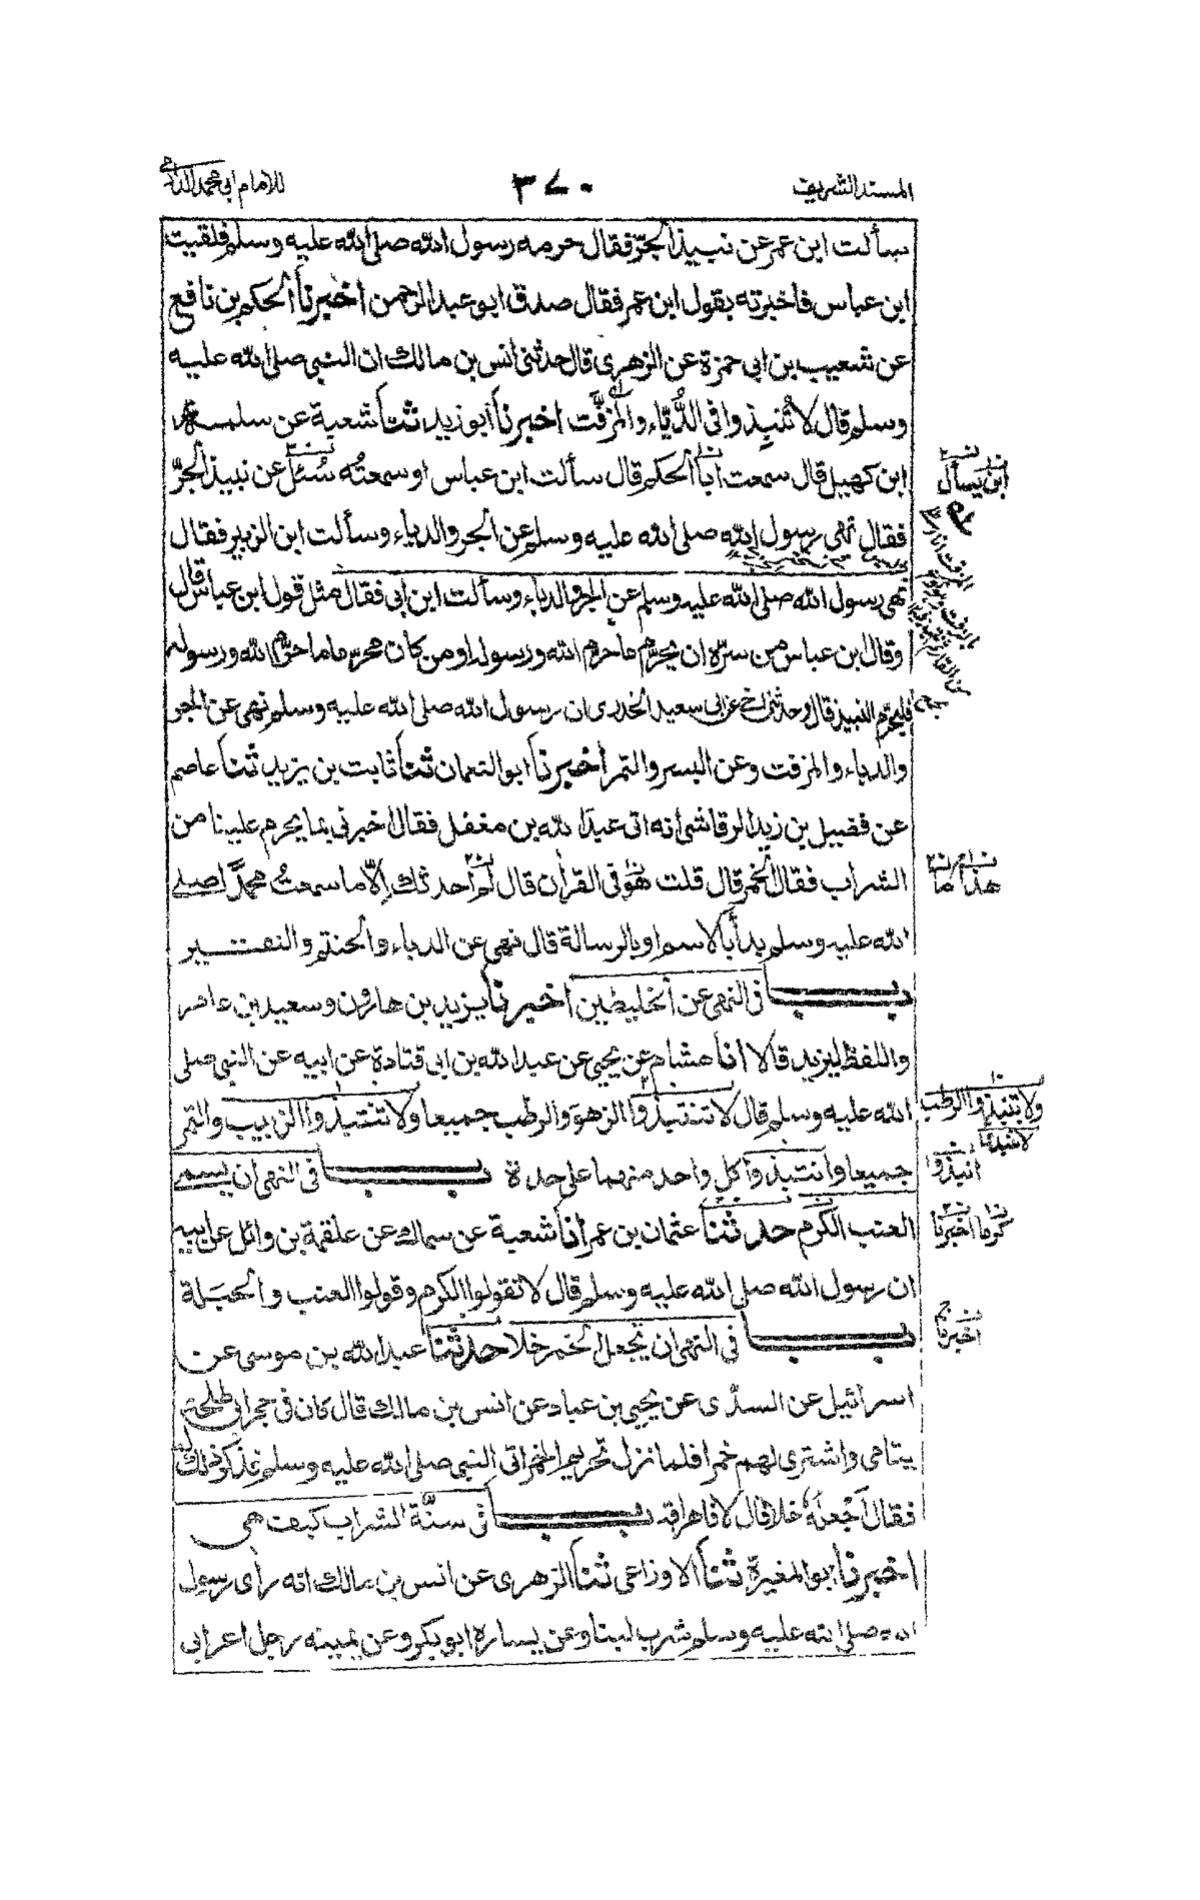 المسند الشريف
٣٧٠
للامام ابی محمد الدارمی
سألت ابن عمر عن نبيذ الجرّ فقال حرمه رسول الله صلى الله عليه وسلم فلقيت
ابن عباس فاخبرته بقول ابن عمر فقال صدق ابو عبد الرحمن اخبرنا الحكم بن نافع
عن شعيب بن ابی حمزة عن الزهری قال حدثنی انس بن مالك ان النبی صلى الله عليه
وسلم قال لا تُنبِذوا فی الدُّبّاء والمزفَّت اخبرنا ابو زيد ثنا شعبة عن سلمة
ابن كهيل قال سمعت ابا الحكم قال سألت ابن عباس او سمعتُه سُئل عن نبيذ الجرّ
فقال نهى رسول الله صلى الله عليه وسلم عن الجر والدباء وسألت ابن الزبير فقال
نهى رسول الله صلى الله عليه وسلم عن الجر والدباء وسألت ابن ابی فقال مثل قول ابن عباس قال
وقال بن عباس من سرّه ان يحرّم ما حرم الله ورسوله او من كان محرما ما حرّم الله ورسوله
فليحرّم النبيذ قال وحدثنی اخی عن ابی سعيد الخدری ان رسول الله صلى الله عليه وسلم نهى عن الجر
والدباء والمزفت وعن البسر والتمر اخبرنا ابو النعمان ثنا ثابت بن يزيد ثنا عاصم
عن فضيل بن زيد الرقاشی انه اتى عبد الله بن مغفل فقال اخبرنی بما يحرم علينا من
الشراب فقال الخمر قال قلت هو فی القران قال لم احدثك الّا ما سمعتُ محمدًا صلى
الله عليه وسلم بدأ بالاسم او بالرسالة قال نهى عن الدباء والحنتم والنقير
باب فی النهی عن الخليطين اخبرنا يزيد بن هارون وسعيد بن عامر
واللفظ ليزيد قالا انا هشام عن يحيى عن عبد الله بن ابی قتادة عن ابيه عن النبی صلى
الله عليه وسلم قال لا تنتبذوا الزهو والرطب جميعا ولا تنتبذوا الزبيب والتمر
جميعا وانتبذوا كل واحد منهما على حدة باب فی النهی ان يسمى
العنب الكرم حدثنا عثمان بن عمر انا شعبة عن سماك عن علقمة بن وائل عن ابيه
ان رسول الله صلى الله عليه وسلم قال لا تقولوا الكرم وقولوا العنب والحبلة
باب فی النهی ان تجعل الخمر خلا حدثنا عبيد الله بن موسى عن
اسرائيل عن السدّی عن يحيى بن عباد عن انس بن مالك قال كان فی حجر ابی طلحة
يتامى واشترى لهم خمرا فلما نزل تحريم الخمر اتى النبی صلى الله عليه وسلم فذكر ذلك له
فقال اَجْعَلُهُ خلا قال لا فاهراقه باب فی سنّة الشراب كيف هی
اخبرنا ابو المغيرة ثنا الاوزاعی ثنا الزهری عن انس بن مالك انه رأى رسول
الله صلى الله عليه وسلم شرب لبنا وعن يساره ابو بكر وعن يمينه رجل اعرابی
ابن يسأل
هذا ما
ولا تنبذوا الرطب
انبذوا
كرما اخبرنا
اخبرنا